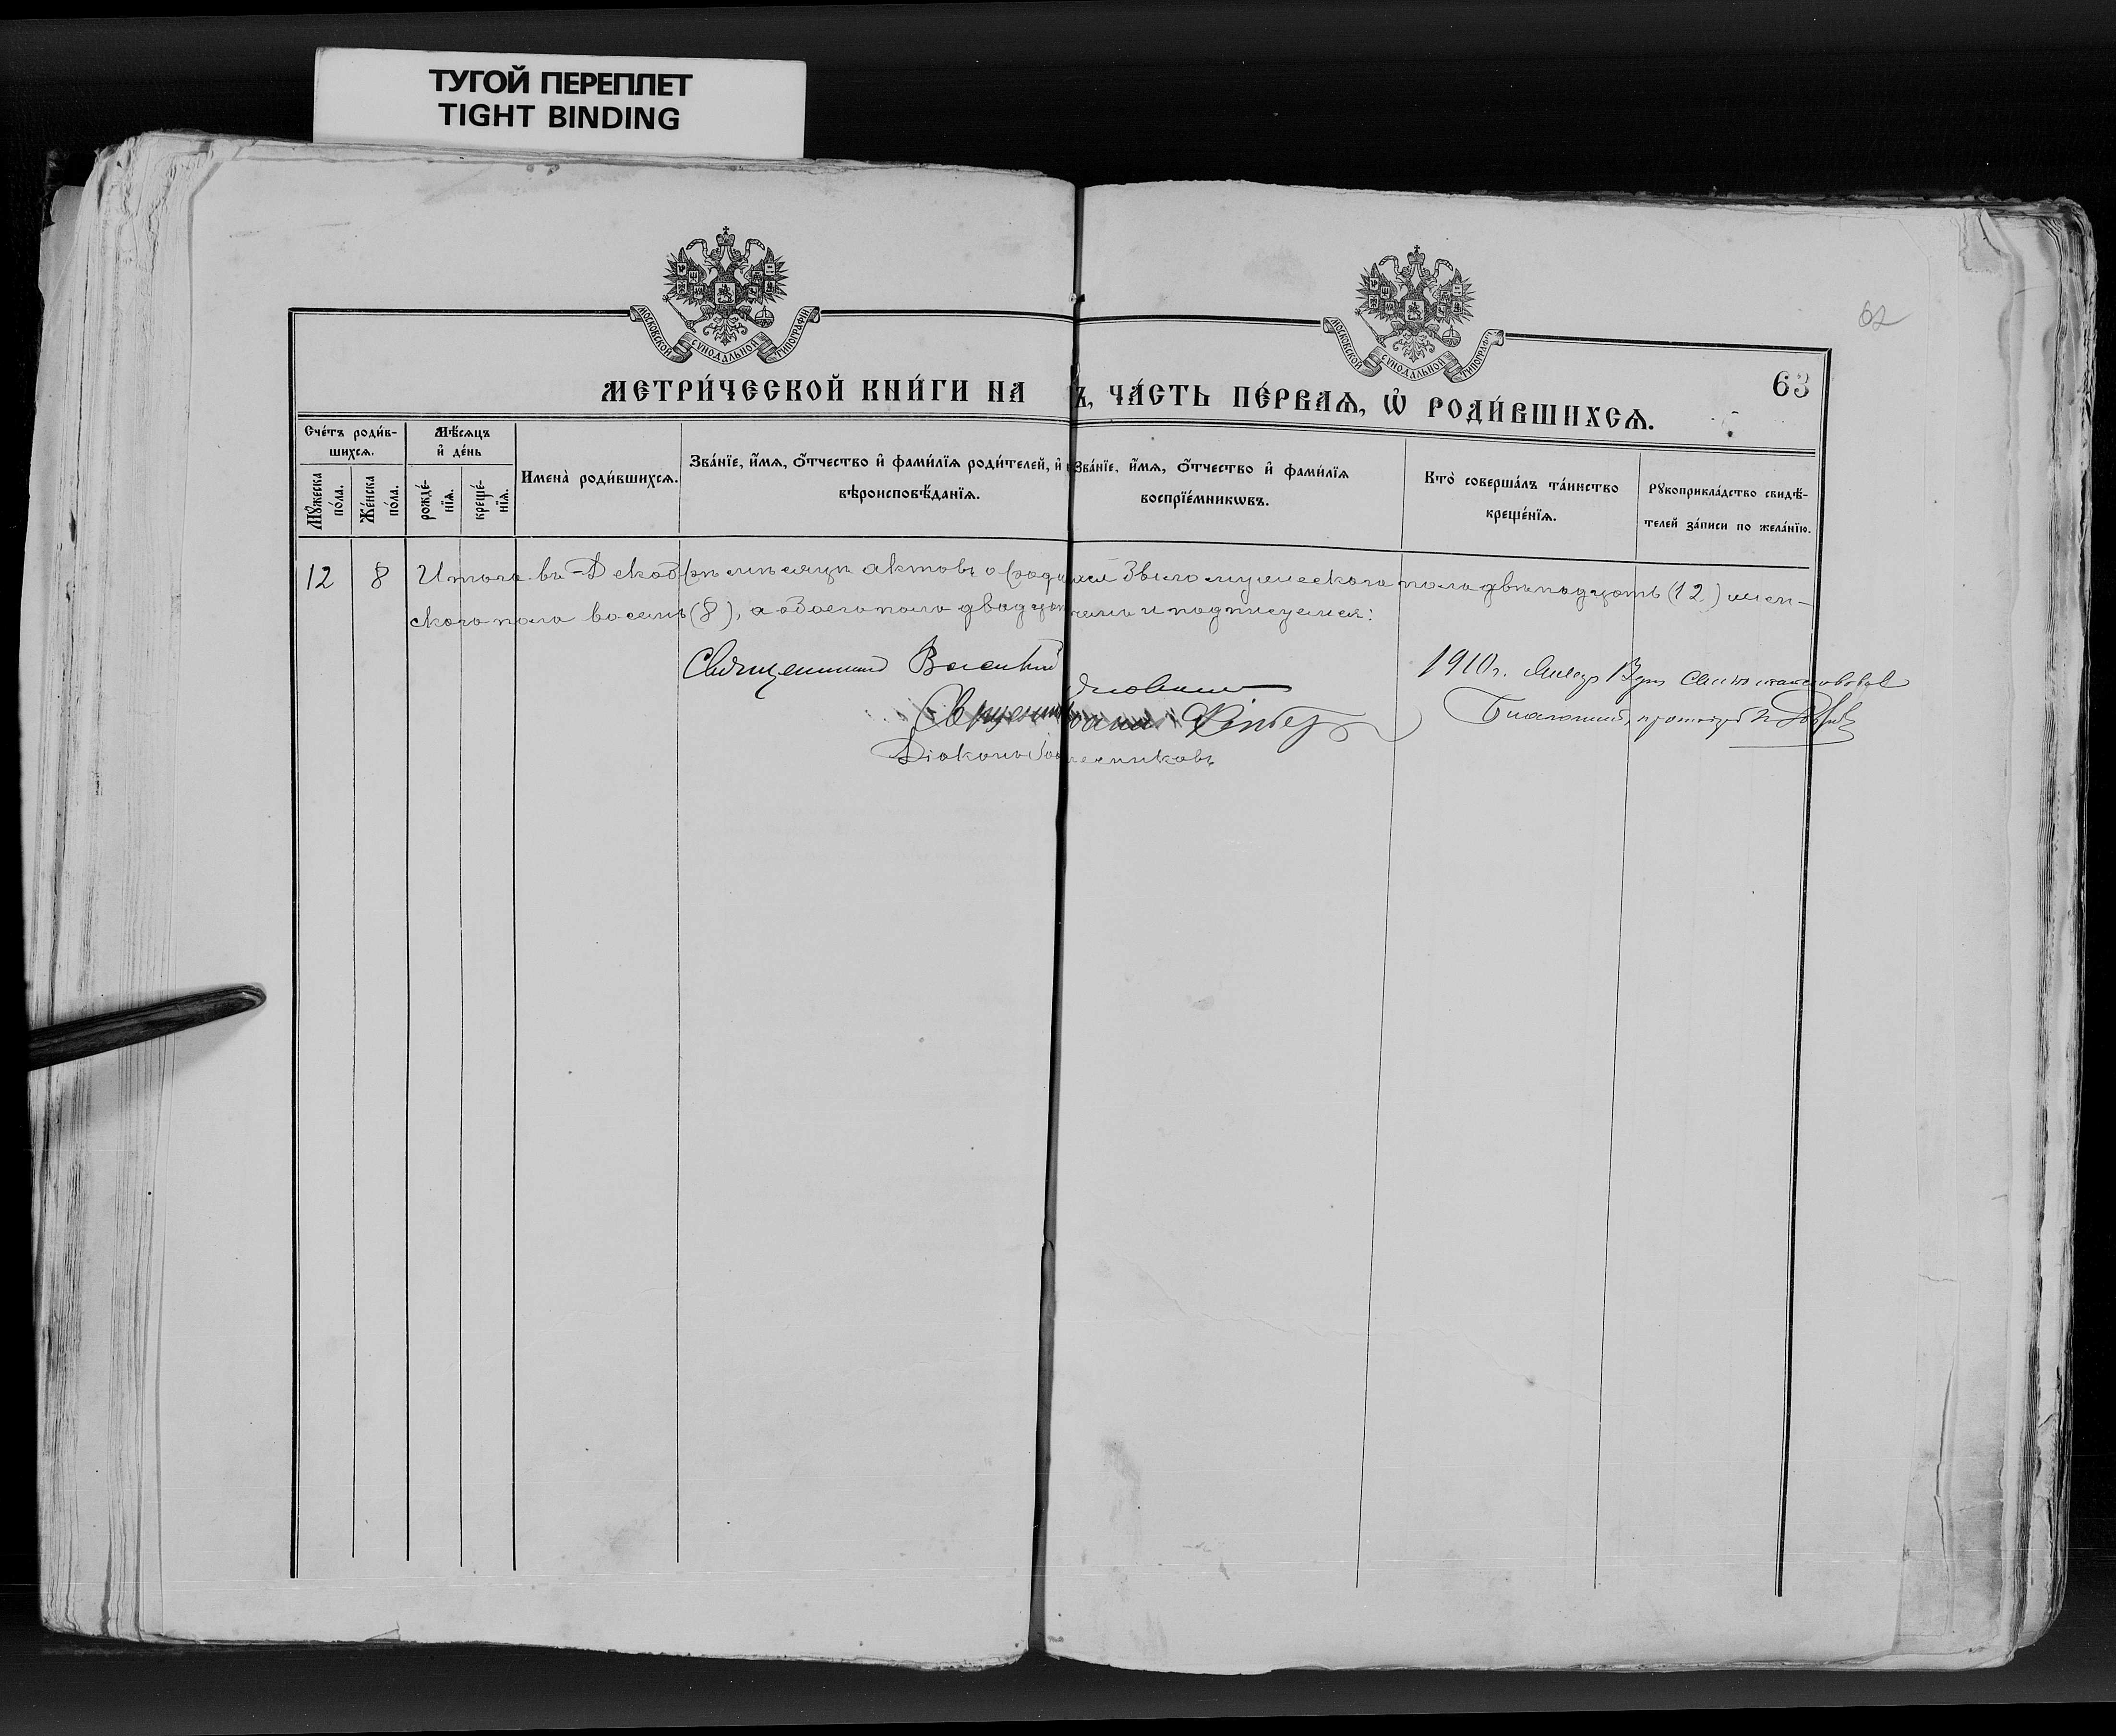 ТУГОЙ ПЕРЕПЛЕТ
TIGHT BINDING
62
МОСКОВСКОЙ СУНОДАЛЬНОЙ ТИПОГРАФІИ
МОСКОВСКОЙ СУНОДАЛЬНОЙ ТИПОГРАФІ
63
МЕТРИ́ЧЕСКОЙ КНИ́ГИ НА Ъ, ЧА́СТЬ ПЕ́РВАѦ, Ѡ҆ РОДИ́ВШИХСѦ.
Сче́тъ роди́в-
шихсѧ.
Мꙋ́жеска
по́ла.
Же́нска
по́ла.
Мѣ́сѧцъ
и҆ де́нь
рожде́-
нїѧ.
креще́-
нїѧ.
Имена̀ роди́вшихсѧ.
Зва́нїе, и҆́мѧ, ѻ҆́тчество и҆ фами́лїѧ роди́телей, и҆
вѣроисповѣ́данїѧ.
Зва́нїе, и҆́мѧ, ѻ҆́тчество и҆ фами́лїѧ
воспрїе́мникѡвъ.
Кто̀ соверша́лъ та́инство
креще́нїѧ.
Рꙋкоприкла́дство свидѣ́-
телей за́писи по жела́нїю.
12 8 Итого въ Декабрѣ мѣсяцѣ актовъ о было мужескаго пола двѣнадцать (12) жен-
скаго пола восемь (8), а обоего пола и подписуемся:
Священникъ Василій
Діаконъ
1910 г.
Благочинный, протоіерей